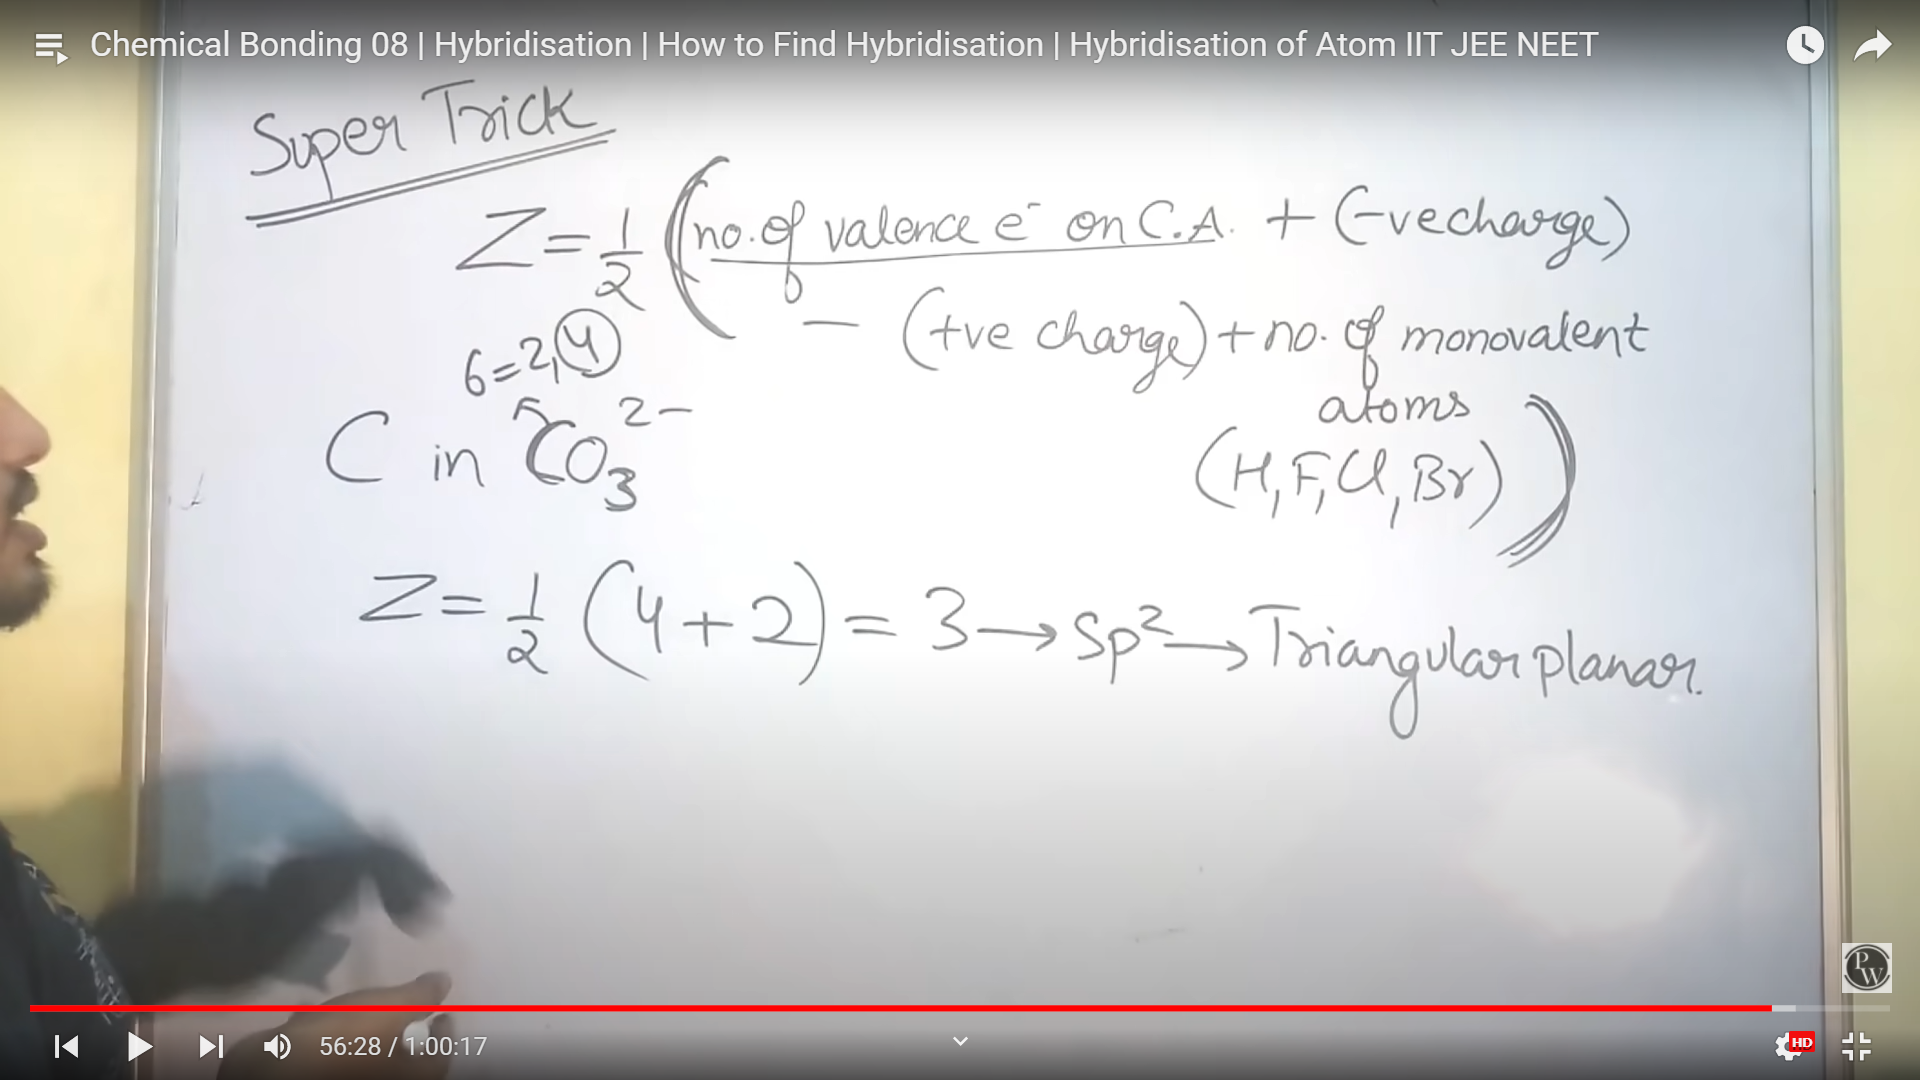 Chemical Bonding 08 | Hybridisation | How to Find Hybridisation | Hybridisation of Atom IIT JEE NEET
Super Trick
Z = 1/2 (no. of valence e⁻ on C.A. + (-ve charge)
- (+ve charge) + no. of monovalent
atoms
(H, F, Cl, Br))
6 = 2, 4
C in CO₃²⁻
Z = 1/2 (4 + 2) = 3 → Sp² → Triangular planar.
PW
56:28 / 1:00:17
HD